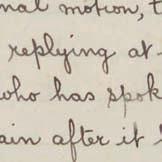 nal motion, t
replying at
who has spok
ain after it